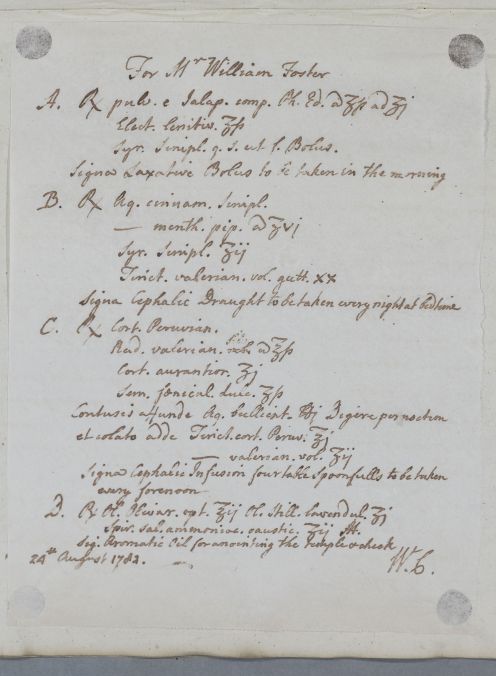 For Mr William Foster
A. ℞ pulv. e Jalap. comp. Ph. Ed. a ʒſs ad ʒj
Elect. lenitiv. ʒſs
Syr. Simpl. q. s. ut f. Bolus.
Signa Laxative Bolus to be taken in the morning
B. ℞ Aq. cinnam. Simpl.
— menth. pip. a ʒvj
Syr. Simpl. ʒij
Tinct. valerian. vol. gutt. xx
Signa Cephalic Draught to be taken every night at bedtime
C. ℞ Cort. Peruvian.
Rad. valerian. a ʒſs
Cort. aurantior. ʒj
Sem. fœnicul. dulc. ʒſs
Contusis affunde Aq. bullient. ℔j Digere per noctem
et colato adde Tinct. cort. Peruv. ʒj
— valerian. vol. ʒij
Signa Cephalic Infusion four table Spoonfulls to be taken
every forenoon
D. ℞ Ol. Olivar. opt. ʒij Ol. Still. lavendul. ʒj
Spir. sal. ammoniac. caustic. ʒij M.
Sig. Aromatic Oil for anointing the temple & cheek
24th August 1782.
W. C.